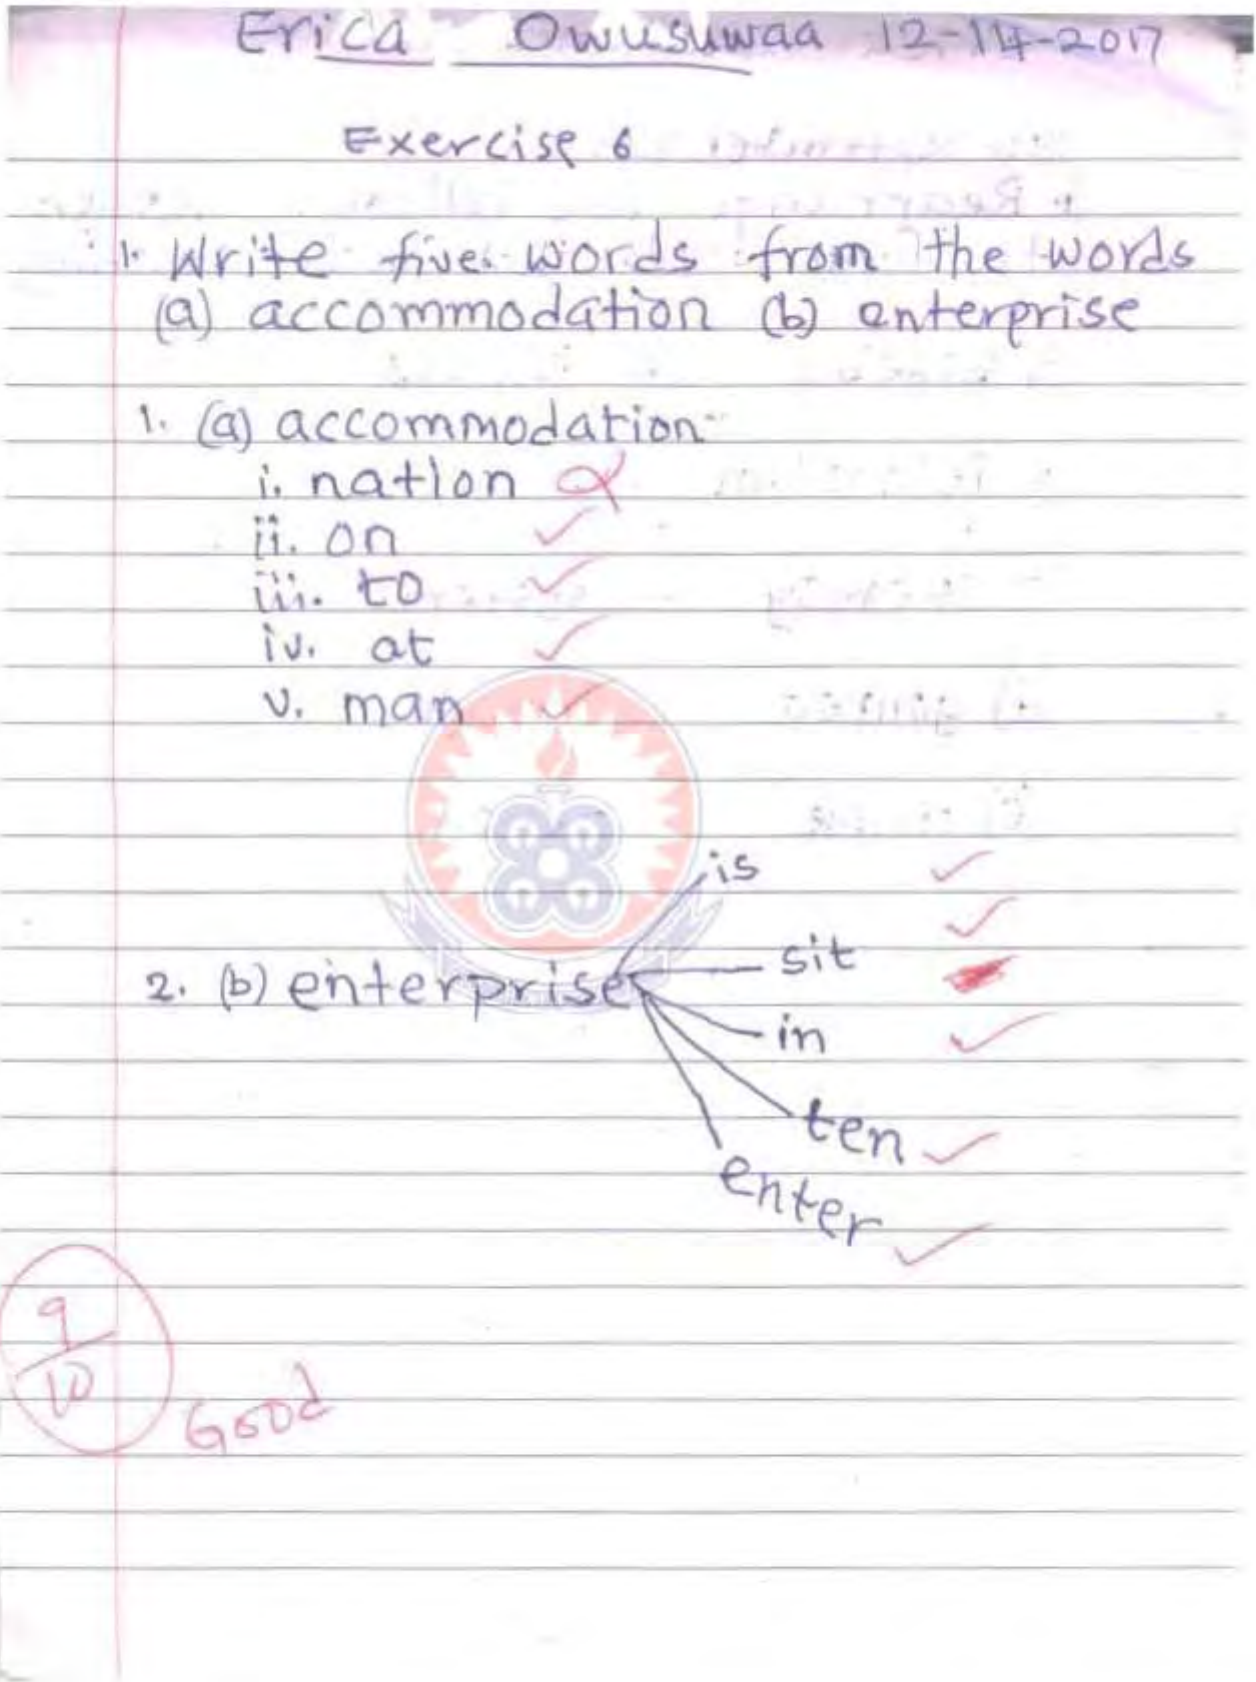 Erica Owusuwaa 12-14-2017
Exercise 6
1. Write five words from the words
(a) accommodation (b) enterprise
1. (a) accommodation
i. nation
ii. on
iii. to
iv. at
v. man
is
sit
2. (b) enterprise
in
ten
enter
9/10
Good